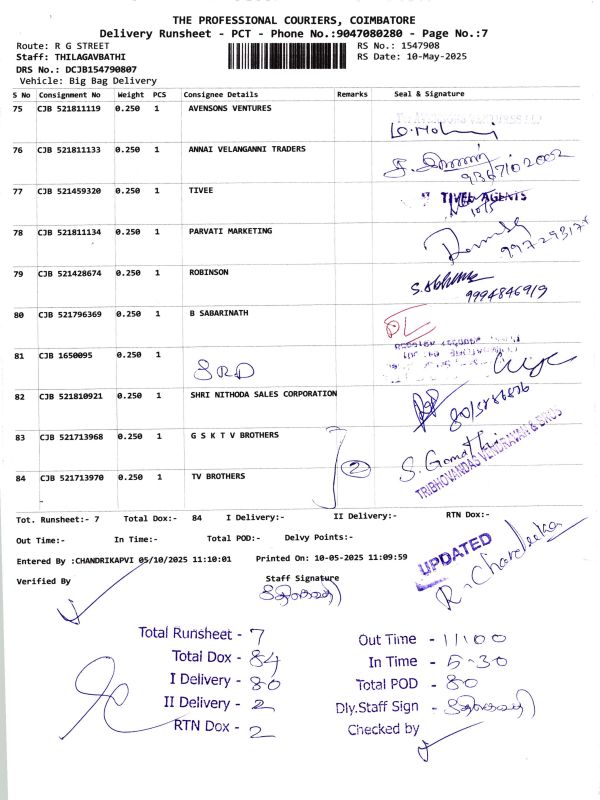 THE PROFESSIONAL COURIERS, COIMBATORE
Delivery Runsheet - PCT - Phone No.:9047080280 - Page No.:7
Route: R G STREET RS No.: 1547908
Staff: THILAGAVBATHI RS Date: 10-May-2025
DRS No.: DCJB154790807
Vehicle: Big Bag Delivery
S No Consignment No Weight PCS Consignee Details Remarks Seal & Signature
75 CJB 521811119 0.250 1 AVENSONS VENTURES
76 CJB 521811133 0.250 1 ANNAI VELANGANNI TRADERS
9367102002
77 CJB 521459320 0.250 1 TIVEE TIVEE AGENTS
10/5
78 CJB 521811134 0.250 1 PARVATI MARKETING
79 CJB 521428674 0.250 1 ROBINSON
9994846919
80 CJB 521796369 0.250 1 B SABARINATH
DL
81 CJB 1650095 0.250 1
SRD
82 CJB 521810921 0.250 1 SHRI NITHODA SALES CORPORATION
83 CJB 521713968 0.250 1 G S K T V BROTHERS
S. Gomathi
84 CJB 521713970 0.250 1 TV BROTHERS 2
TRIBHOVANDAS VENDRAVAN & BROS
Tot. Runsheet:- 7 Total Dox:- 84 I Delivery:- II Delivery:- RTN Dox:-
Out Time:- In Time:- Total POD:- Delvy Points:-
Entered By :CHANDRIKAPVI 05/10/2025 11:10:01 Printed On: 10-05-2025 11:09:59
UPDATED
Verified By Staff Signature
Total Runsheet - 7
Total Dox - 84
I Delivery - 80
II Delivery - 2
RTN Dox - 2
Out Time - 11:00
In Time - 5-30
Total POD - 80
Dly.Staff Sign -
Checked by